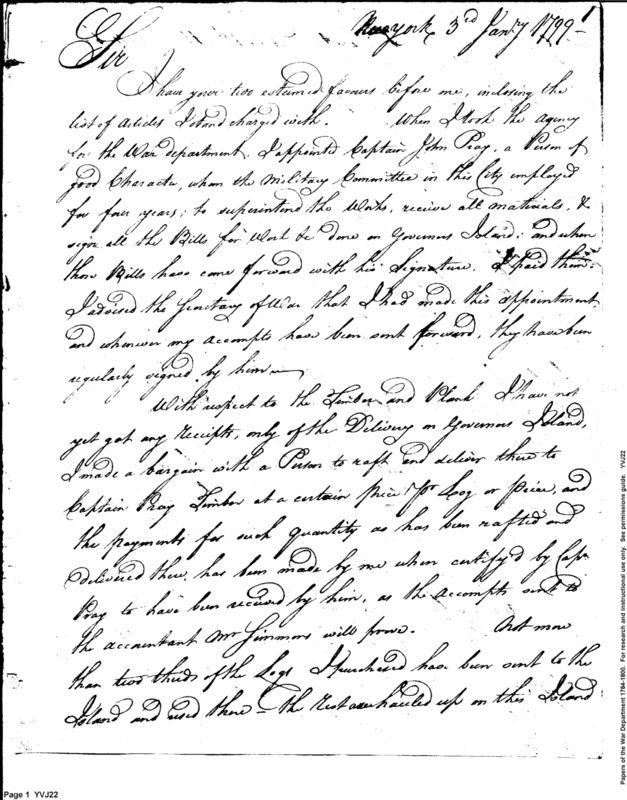 New York 3rd Jany 1799
Sir
I have your two esteemed favours before me, inclosing the
list of articles I stand charged with. When I took the agency
for the War department, I appointed Captain John Pray, a Person of
good Character, whom the Military Committee in this City employed
for four years; to superintend the Works, receive all materials, &
sign all the Bills for Work &c done on Governors Island; and when
those Bills have come forward with his Signature, I paid them:
I advised the Secretary of War that I had made this appointment,
and whenever my accompts have been sent forward, they have been
regularly signed by him
With respect to the Timber and Plank I have not
yet got any receipts, only of the Delivery on Governors Island,
I made a bargain with a Person to raft and deliver there to
Captain Pray Timber at a certain price pr Log or piece, and
the payments for such quantity as has been rafted and
delivered there, has been made by me when certify'd by Capn
Pray to have been received by him, as the accompts sent to
the accountant Mr Simmons will prove. Not more
than two thirds of the Logs I purchased have been sent to the
Island and used there - the rest are hauled up on this Island
Page 1 YVJ22
Papers of the War Department 1784-1800. For research and instructional use only. See permissions guide. YVJ22